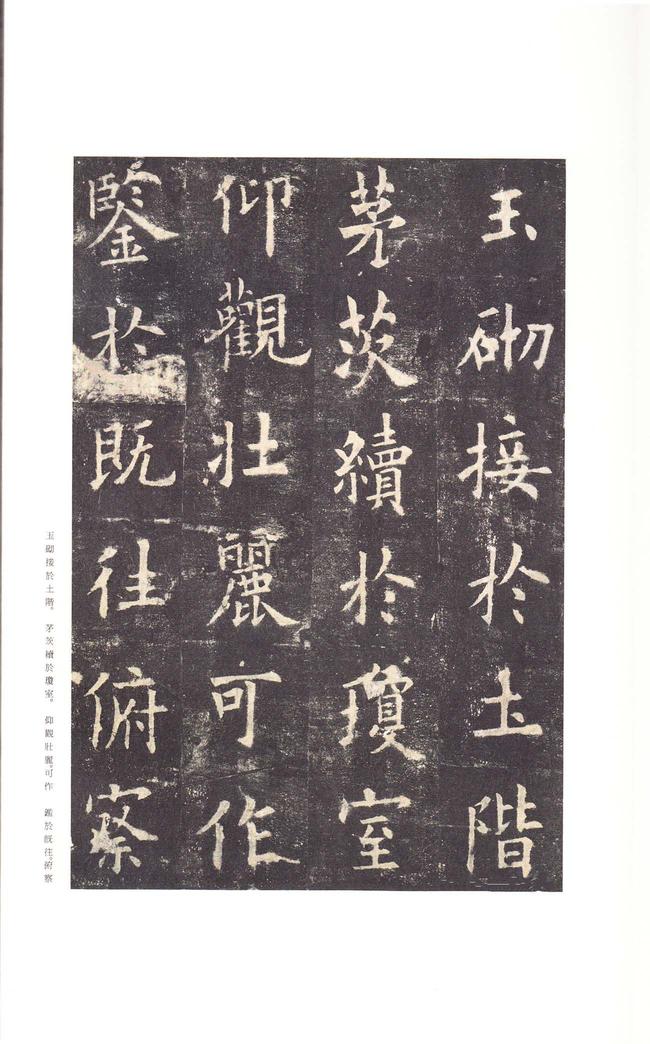 玉砌接於土階
茅茨續於瓊室
仰觀壯麗可作
鑒於既往俯察
玉砌接於土階。茅茨續於瓊室。仰觀壯麗。可作 鑑於既往。俯察